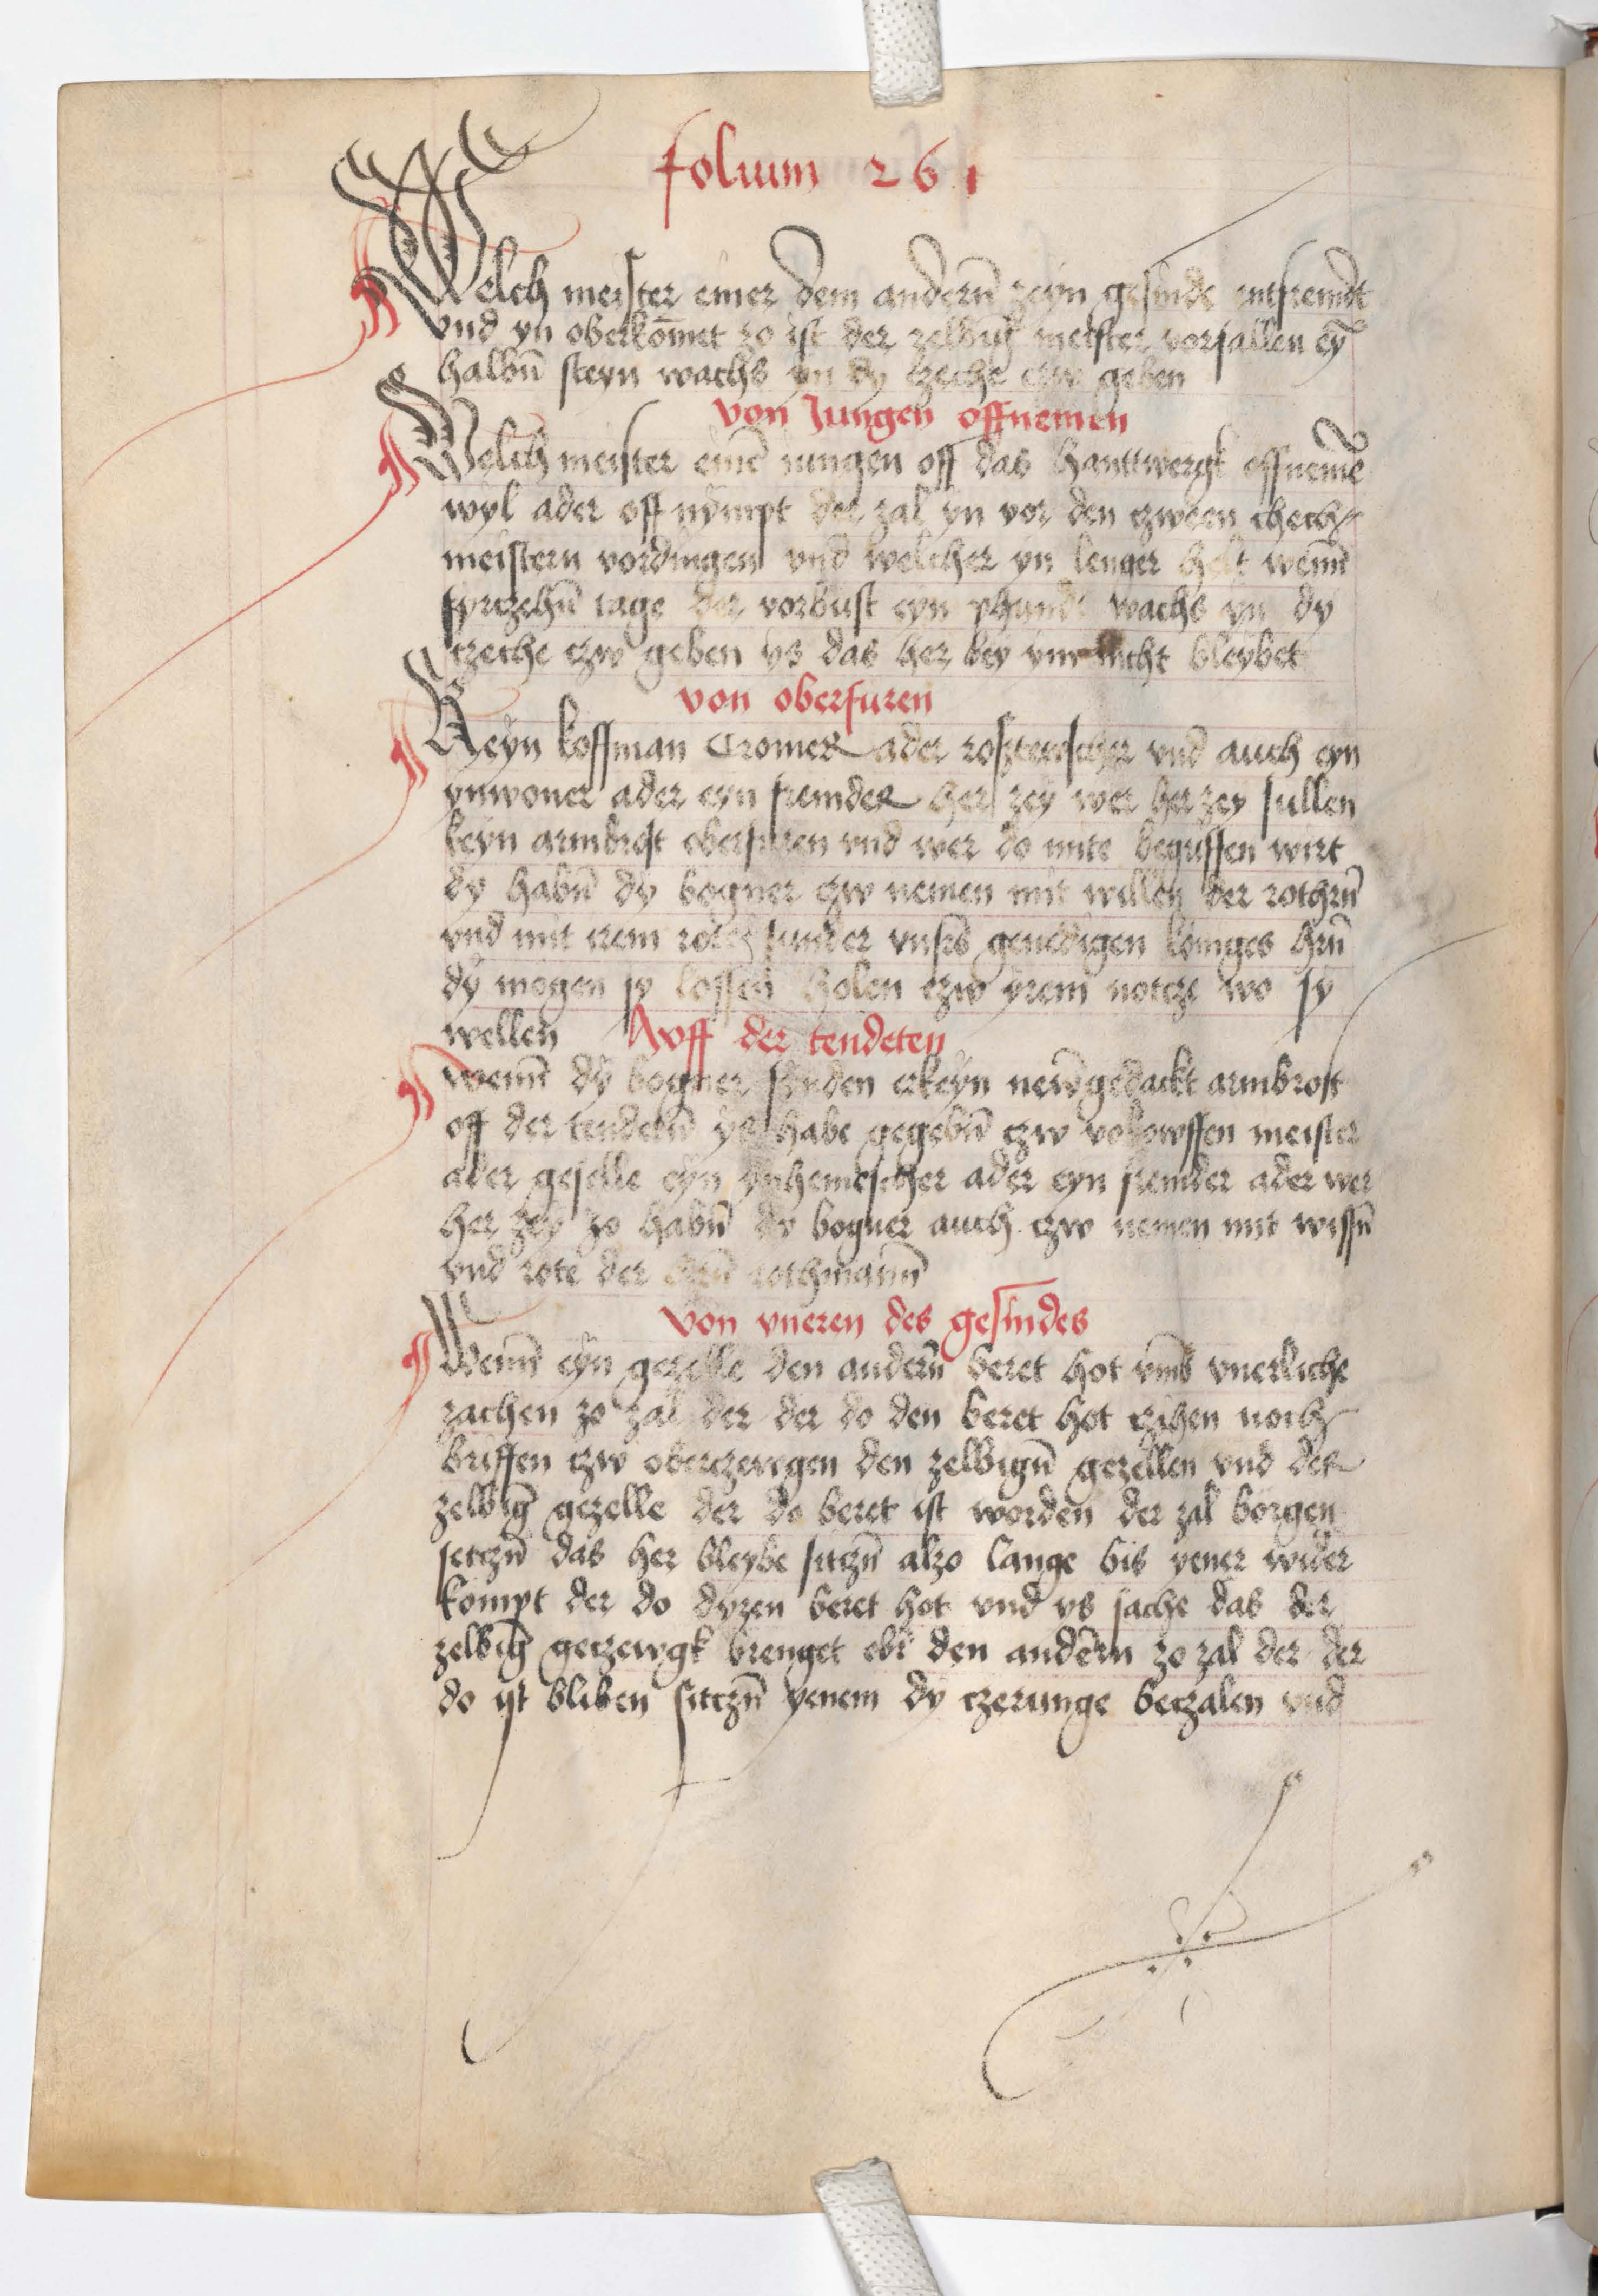 folium 261
Welch meister einer dem andern̄ zeyn gesinde entfremdt
vnd yn oberkōmet zo ist der zelbig meister vorfallen ey̅
halbn̄ steyn wachs yn dy czeche czw geben
von Jungen offnemen
Welch meister eine̅ iungen off das hanttwergk offneme̅
wyl ader off nympt der zal yn vor den czween czech
meistern vordingen vnd welcher yn lenger helt wenn̄
fyrczehn̄ tage der vorbust eyn phundt wachs yn dy
czeche czw geben ys das her bey ym nicht bleybet
von oberfuren
Keyn koffman Cromer ader roszteuscher vnd auch eyn
ynwoner ader eyn fremder her zey wer her zey sullen
keyn armbrost oberfuren vnd wer do mite begriffen wirt
dy habn̄ dy bogner czw nemen mit willen der rothrn̄
vnd mit irem rote sunder vnsrs genedigen koniges hrn̄
dy mogen sy lossen holen czw yrem notcze wo sy
wellen Awff der tendeten
wenn̄ dy bogner fynden erkeyn new̄gedackt armbrost
off der tendetn̄ ys habe gegebn̄ czw vorkowffen meister
ader geselle eyn ynhemischer ader eyn fremder ader wer
her zey zo habn̄ dy bogner auch czw nemen mit wissn̄
vnd rote der hrn̄ rothmann̄
von vneren des gesindes
Wenn̄ eyn gezelle den andern̄ beret hot vmb vnerliche
zachen zo zal der der do den beret hot czihen noch
briffen czw oberczewgen den zelbign̄ gezellen vnd der
zelbig̅ gezelle der do beret ist worden der zal borgen
setczn̄ das her bleybe sitczn̄ alzo lange bis yener wider
kompt der do dyzen beret hot vnd ys sache das der
zelbig̅ geczewgk brenget obr den andern zo zal der der
do ist bliben sitczn̄ yenem dy czerunge beczalen vnd